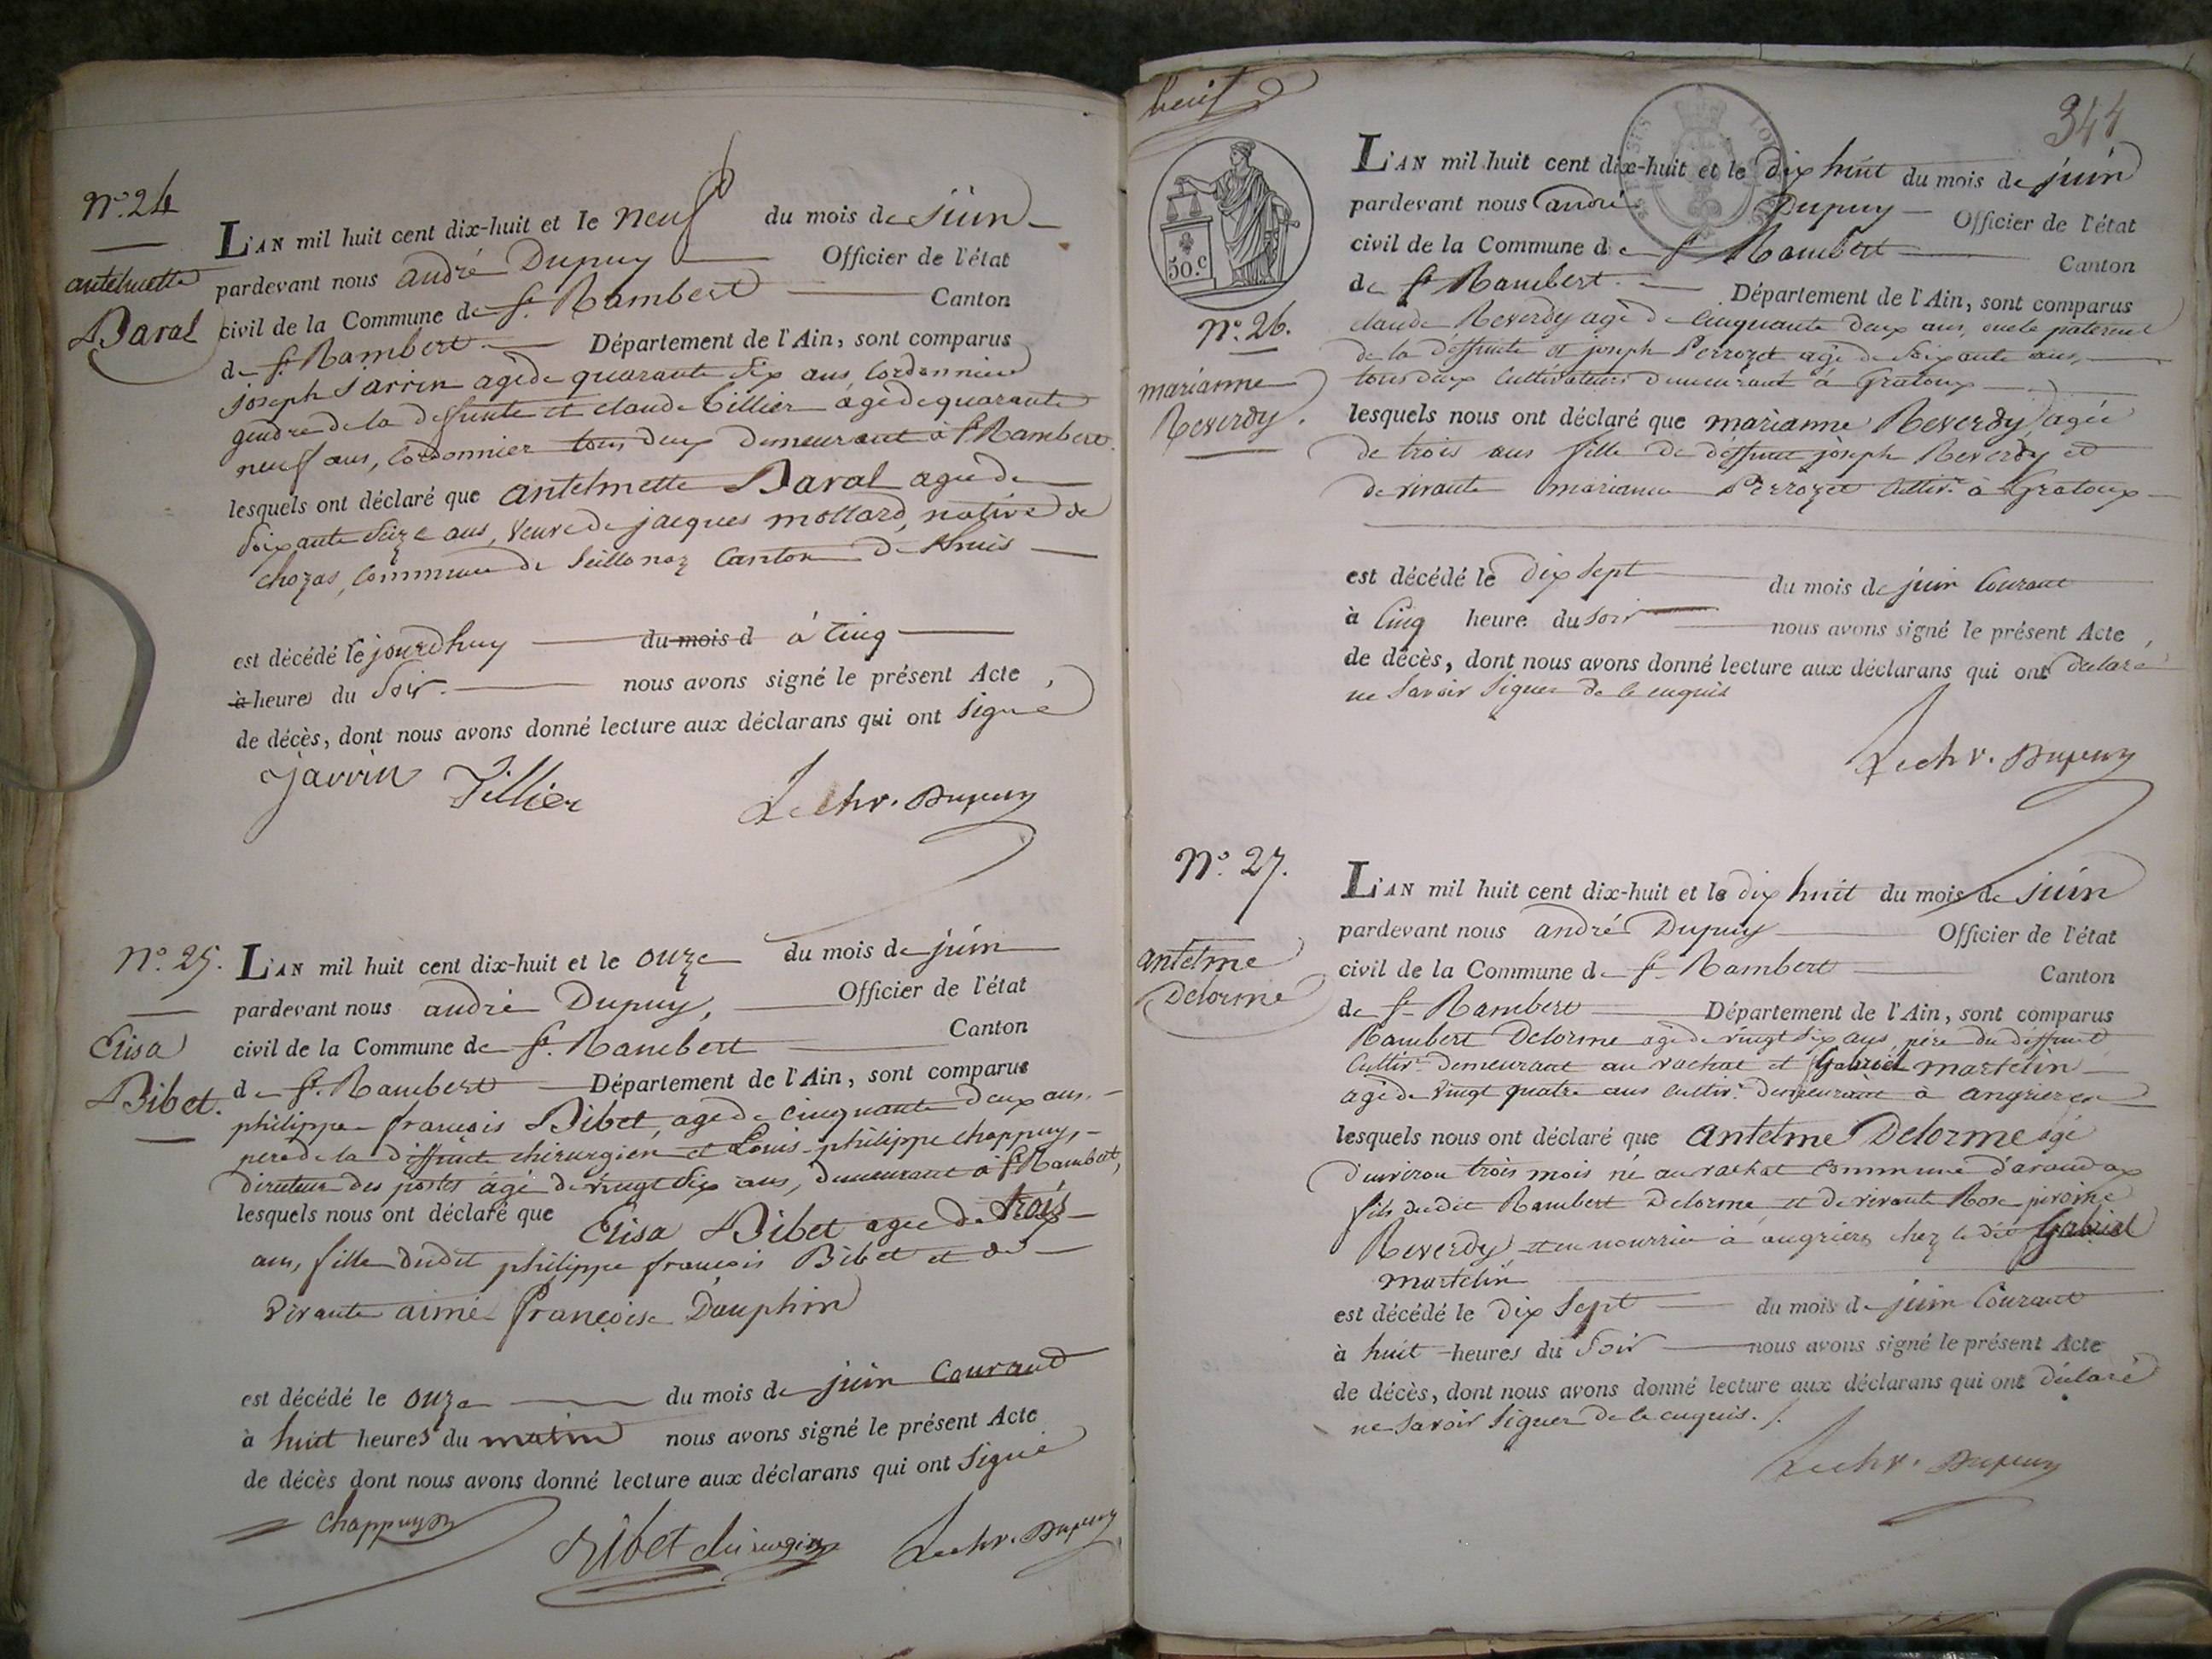 N.° 24
antelmette
Daval
L'AN mil huit cent dix-huit et le neuf du mois de juin
pardevant nous andré Dupuy Officier de l'état
civil de la Commune de St. Rambert Canton
de St. Rambert Département de l'Ain, sont comparus
joseph Jarrin agé de quarante six ans Cordonnier
gendre de la deffunte et claude Tillier agé de quarante
neuf ans, Cordonnier tous deux demeurant à St. Rambert
lesquels ont déclaré que antelmette Daval agée de
soixante seize ans, veuve de jacques mollard, native de
chozas, commune de Seillonaz Canton de Lhuis
est décédé le jourdhuy du mois d à cinq
à heures du Soir. nous avons signé le présent Acte
de décès, dont nous avons donné lecture aux déclarans qui ont signé
Jarrin Tillier Le chr. Dupuy
N.° 25.
Elisa
Bibet.
L'AN mil huit cent dix-huit et le onze du mois de juin
pardevant nous andré Dupuy, Officier de l'état
civil de la Commune de St. Rambert Canton
de St. Rambert Département de l'Ain, sont comparus
philippe françois Bibet, agé de cinquante deux ans,
pere de la deffunte chirurgien et Louis philippe chappuy,
directeur des postes agé de vingt six ans, demeurant à St. Rambert,
lesquels nous ont déclaré que Elisa Bibet agée de trois
ans, fille dudit philippe françois Bibet et de
vivante aimé françoise Dauphin
est décédé le onze du mois de juin Courant
à huit heures du matin nous avons signé le présent Acte
de décès dont nous avons donné lecture aux déclarans qui ont signé
Chappuy Bibet chirurgien Le chr. Dupuy
huit
344
50.c
N.° 26.
marianne
Reverdy.
L'AN mil huit cent dix-huit et le dix huit du mois de juin
pardevant nous andré Dupuy Officier de l'état
civil de la Commune de St. Rambert Canton
de St. Rambert. Département de l'Ain, sont comparus
claude Reverdy agé de cinquante deux ans, oncle paternel
de la deffunte et joseph Perrozet agé de soixante ans,
tous deux Cultivateurs demeurant à Gratoux
lesquels nous ont déclaré que marianne Reverdy, agée
de trois ans fille de deffunt joseph Reverdy et
de vivante marianne Perrozet Cultiv.r à Gratoux
est décédé le dix sept du mois de juin Courant
à Cinq heure du soir nous avons signé le présent Acte,
de décès, dont nous avons donné lecture aux déclarans qui ont déclaré
ne savoir signer de ce enquis
Le chr. Dupuy
N.° 27.
antelme
Delorme
L'AN mil huit cent dix-huit et le dix huit du mois de juin
pardevant nous andré Dupuy Officier de l'état
civil de la Commune de St. Rambert Canton
de St. Rambert Département de l'Ain, sont comparus
Rambert Delorme agé de vingt six ans, père du deffunt
Cultiv.r demeurant au vachat et Gabriel martelin
agé de vingt quatre ans cultiv.r demeurant à angrieres
lesquels nous ont déclaré que antelme Delorme agé
d'environ trois mois né au vachat commune d'arandas
fils dudit Rambert Delorme et de vivante Rose
Reverdy et en nourrice à angrieres chez le dit Gabriel
martelin
est décédé le dix Sept du mois de juin Courant
à huit heures du Soir nous avons signé le présent Acte
de décès, dont nous avons donné lecture aux déclarans qui ont déclaré
ne savoir signer de ce enquis.
Le chr. Dupuy